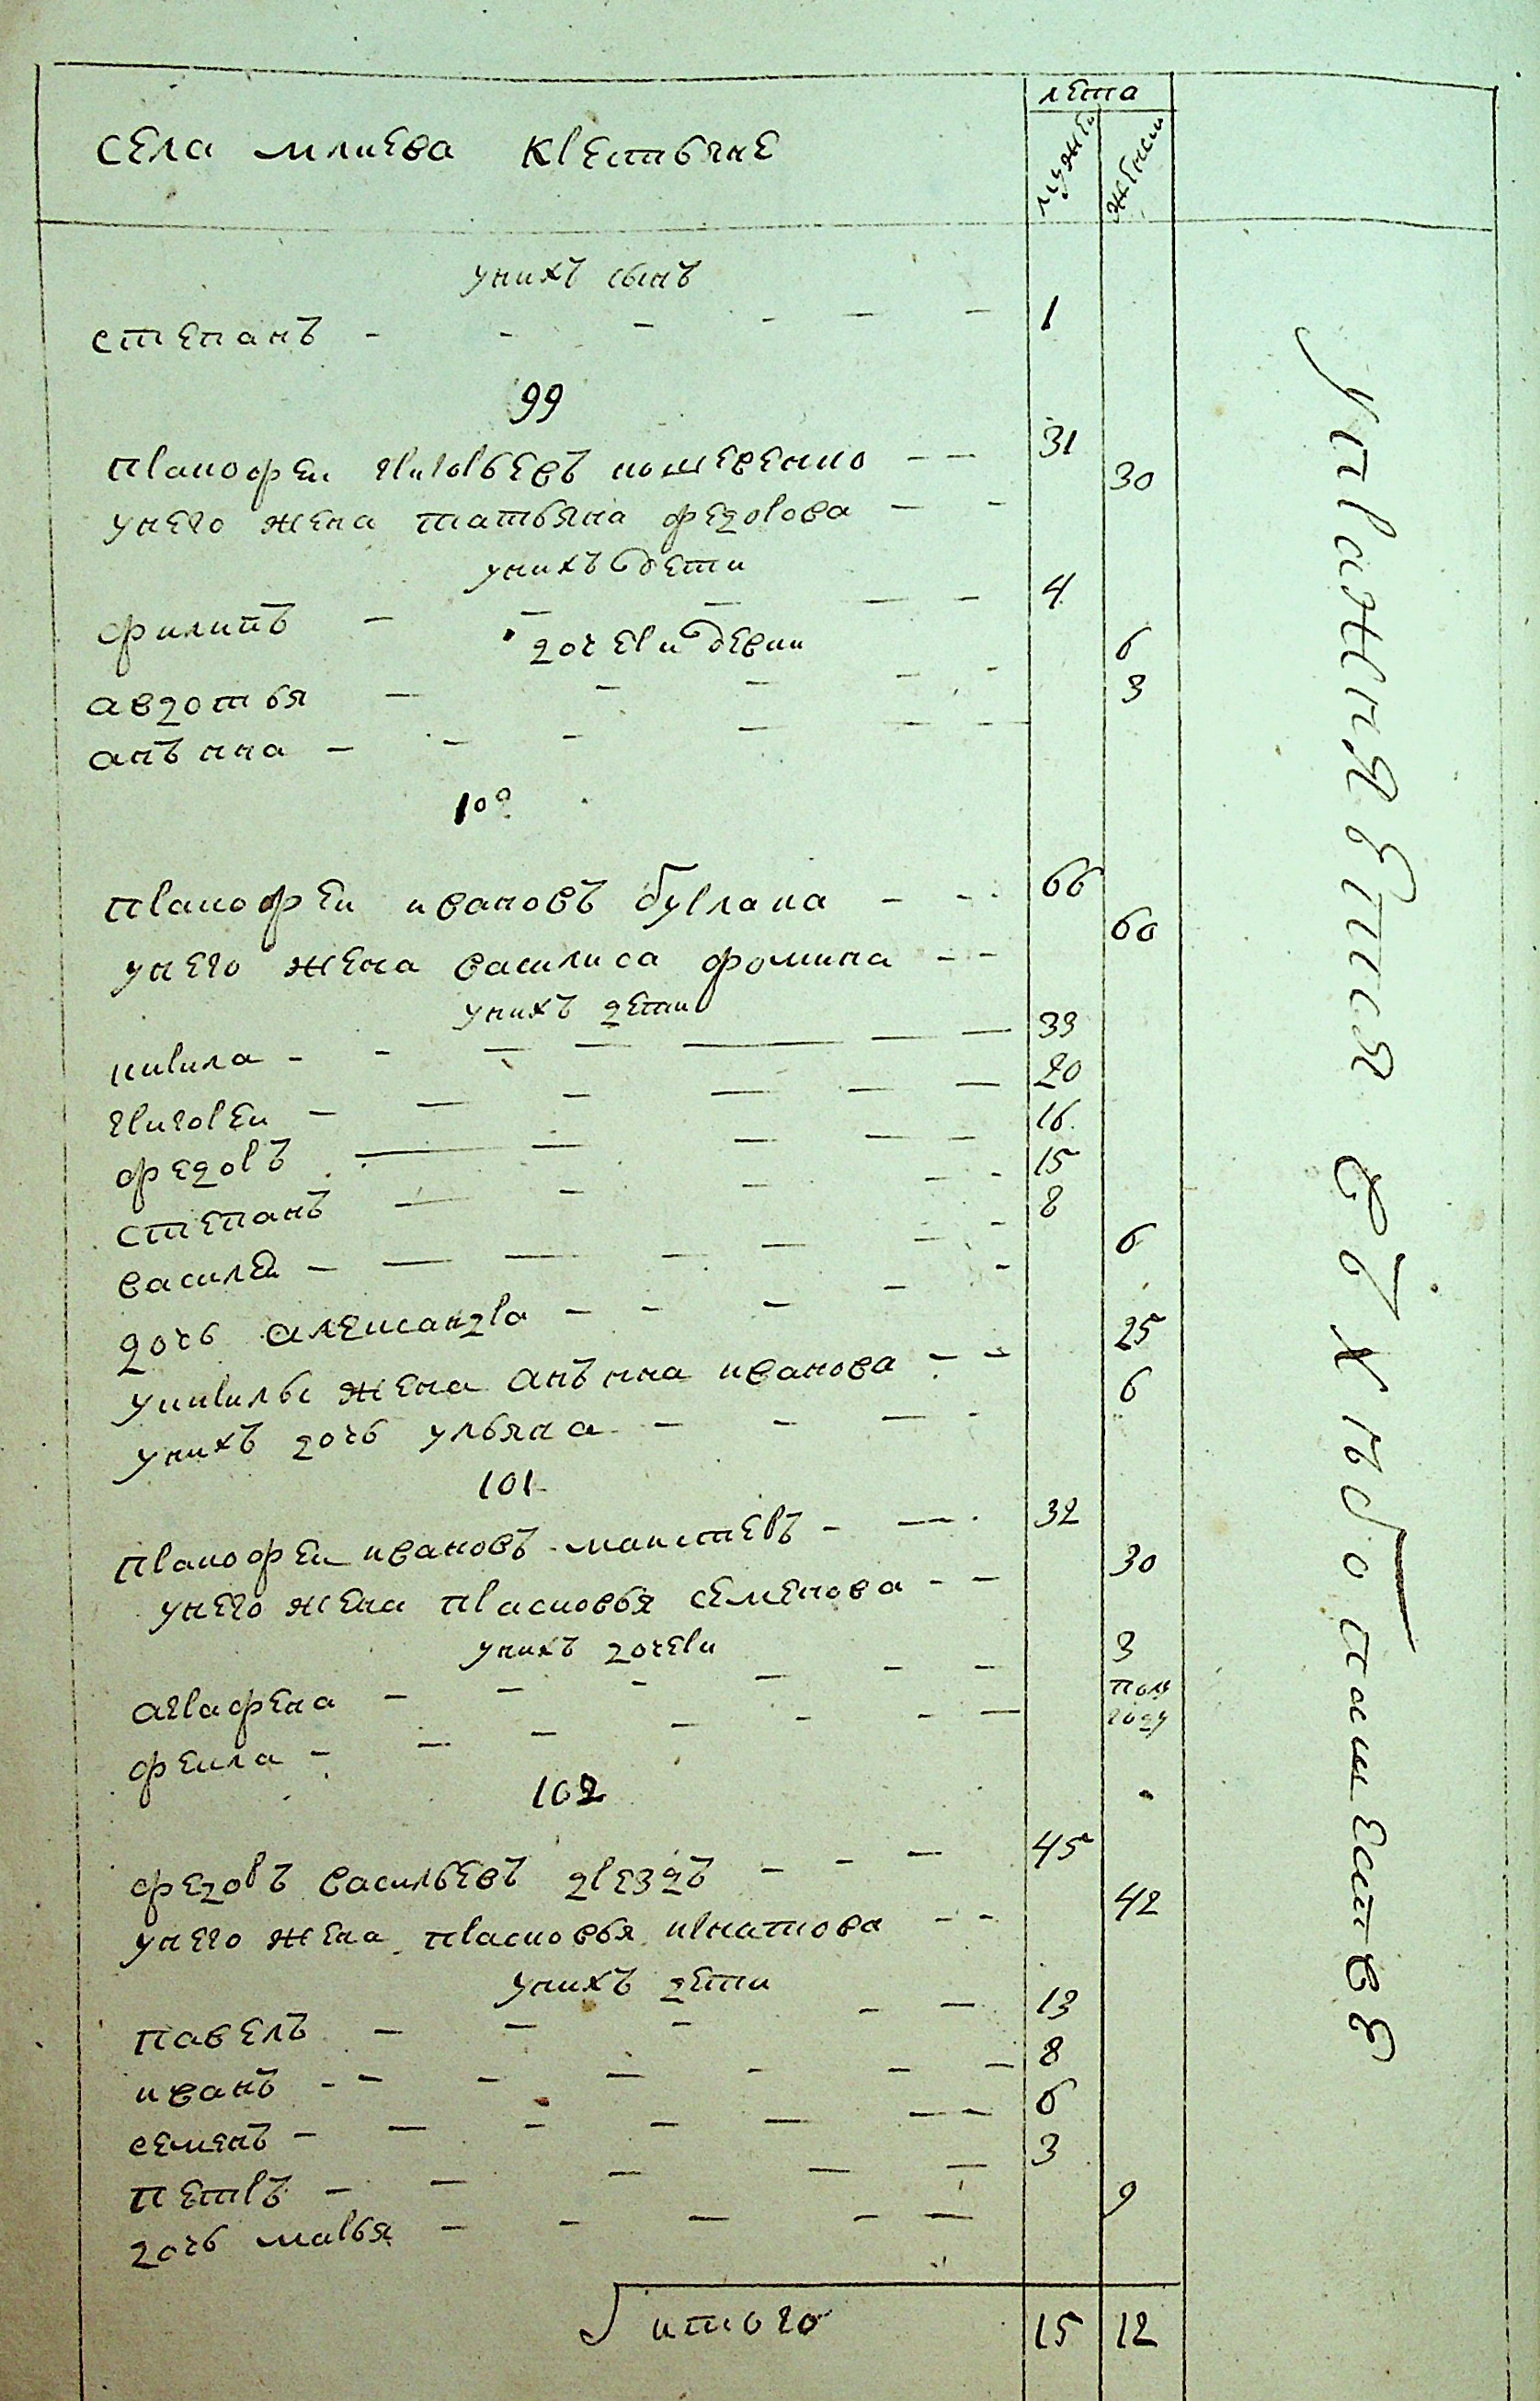 села млиева крестьяне
лета
мужеи
женски
унихъ сынъ
степанъ 1
99
пракофеи григорьевъ кошеренко 31
унего жена татьяна федорова 30
унихъ дети
филипъ 4
дочери девки
авдотья 6
анънна 3
100
пракофеи ивановъ бурлака 66
унего жена василиса фомина 60
унихъ дети
кирила 33
григореи 20
федоръ 16
степанъ 15
василеи 8
дочь александра 6
укирилы жена анънна иванова 25
унихъ дочь ульяна 6
101
пракофеи ивановъ макстеръ 32
унего жена прасковья семенова 30
унихъ дочери
аграфена 3
фекла пол году
102
федоръ васильевъ дрездъ 45
унего жена прасковья игнатова 42
унихъ дети
павелъ 13
иванъ 8
семенъ 6
петръ 3
дочь марья 9
итого 15 12
упражняются вхлебопашестве